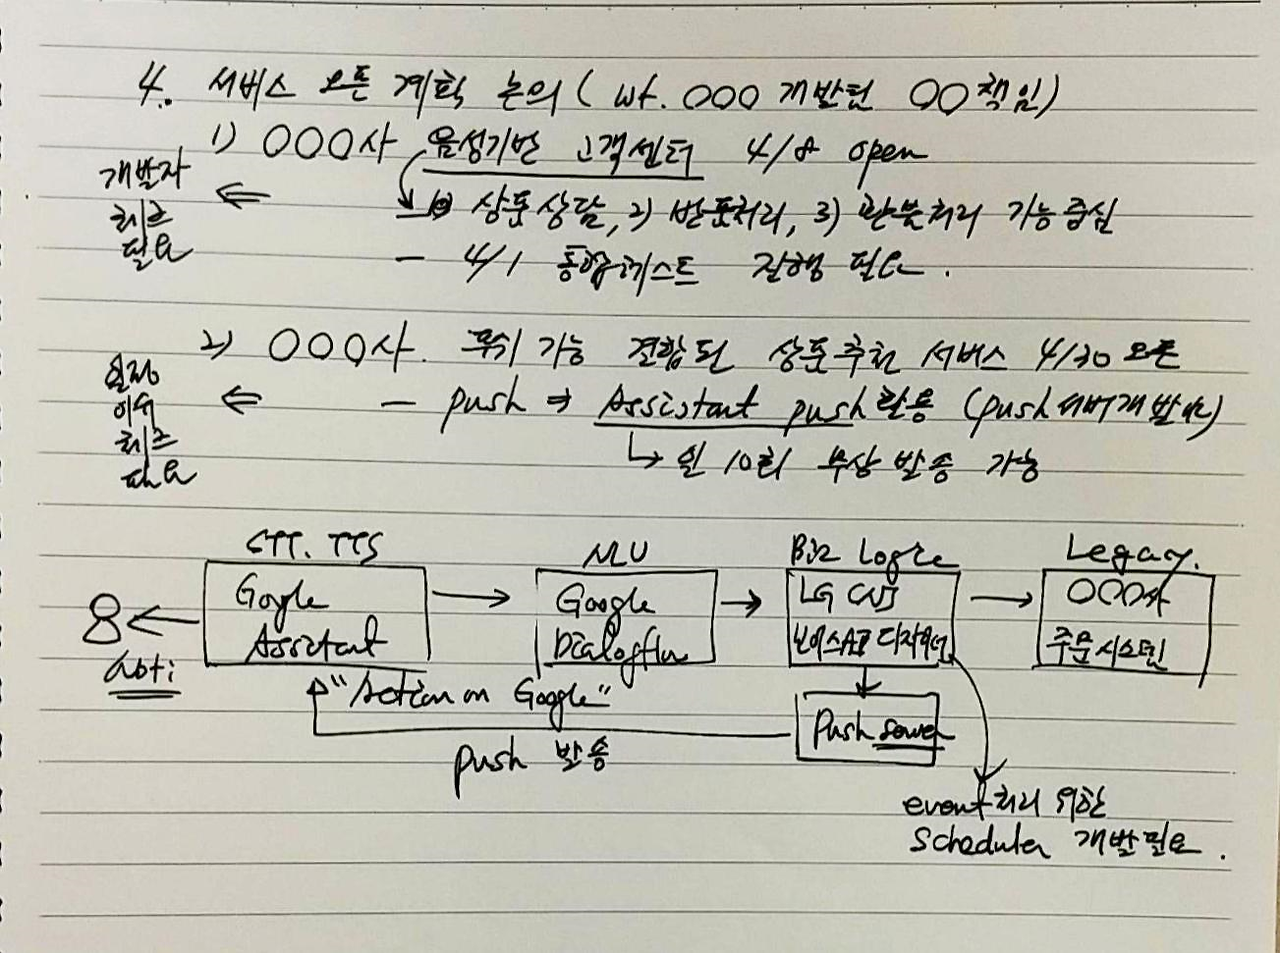 4. 서비스 오픈 계획 논의 ( wt. OOO 개발팀 OO책임)
1) OOO사 음성기반 고객센터 4/8 open
개발자
체크
필요
⇐
1) 상품상담, 2) 반품처리, 3) 환불처리 기능중심
- 4/1 통합테스트 진행 필요.
2) OOO사. 푸쉬 기능 결합된 상품추천 서비스 4/30 오픈
일정
이슈
체크
필요
⇐
- push ⇒ Assistant push 활용 (push서버개발必)
↳ 일 10회 무상 발송 가능
STT. TTS
NLU
Biz Logic
Legacy.
Google
Assistant
Google
Dialogflow
LG CNS
보이스AI 디자이너
OOO사
주문시스템
noti
"Action on Google"
push server
push 발송
event처리 위한
Scheduler 개발필요.